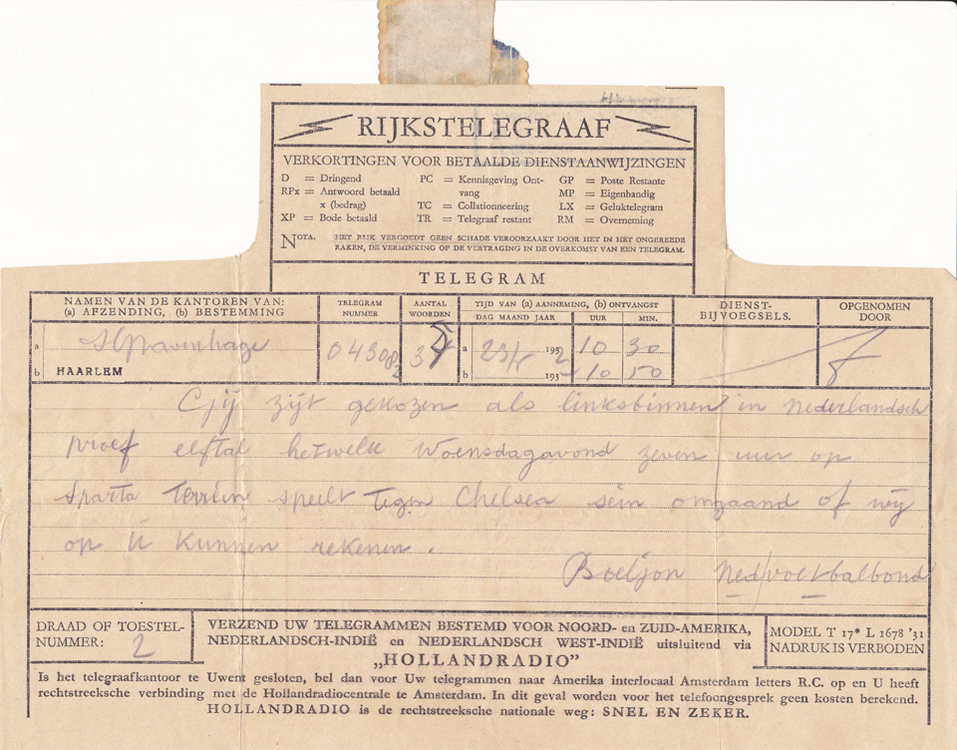 RIJKSTELEGRAAF
VERKORTINGEN VOOR BETAALDE DIENSTAANWIJZINGEN
D = Dringend PC = Kennisgeving Ont- GP = Poste Restante
RPx = Antwoord betaald vang MP = Eigenhandig
x (bedrag) TC = Collationneering LX = Geluktelegram
XP = Bode betaald TR = Telegraaf restant RM = Overneming
NOTA. HET RIJK VERGOEDT GEEN SCHADE VEROORZAAKT DOOR HET IN HET ONGEREEDE
RAKEN, DE VERMINKING OF DE VERTRAGING IN DE OVERKOMST VAN EEN TELEGRAM.
TELEGRAM
NAMEN VAN DE KANTOREN VAN: TELEGRAM AANTAL TIJD VAN (a) AANNEMING, (b) ONTVANGST DIENST- OPGENOMEN
(a) AFZENDING, (b) BESTEMMING NUMMER WOORDEN DAG MAAND JAAR UUR MIN. BIJVOEGSELS. DOOR
a sGravenhage a 1932 10 30
b HAARLEM b 193 10 50
Gij zijt gekozen als linksbinnen in nederlandsch
proef elftal hetwelk Woensdagavond zeven uur op
Sparta Terrein speelt Tegen Chelsea sein omgaand of wij
op U kunnen rekenen.
Boeljon Ned/voetbalbond
DRAAD OF TOESTEL-
NUMMER: 2
VERZEND UW TELEGRAMMEN BESTEMD VOOR NOORD- en ZUID-AMERIKA,
NEDERLANDSCH-INDIË en NEDERLANDSCH WEST-INDIË uitsluitend via
„HOLLANDRADIO”
MODEL T 17* L 1678 '31
NADRUK IS VERBODEN
Is het telegraafkantoor te Uwent gesloten, bel dan voor Uw telegrammen naar Amerika interlocaal Amsterdam letters R.C. op en U heeft
rechtstreeksche verbinding met de Hollandradiocentrale te Amsterdam. In dit geval worden voor het telefoongesprek geen kosten berekend.
HOLLANDRADIO is de rechtstreeksche nationale weg: SNEL EN ZEKER.